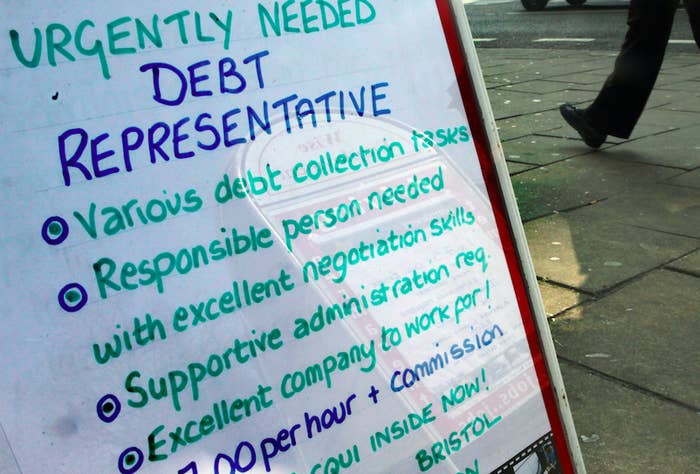 URGENTLY NEEDED
DEBT
REPRESENTATIVE
Various debt collection tasks
Responsible person needed
with excellent negotiation skills
Supportive administration req.
Excellent company to work for!
.00 per hour + commission
INSIDE NOW!
BRISTOL